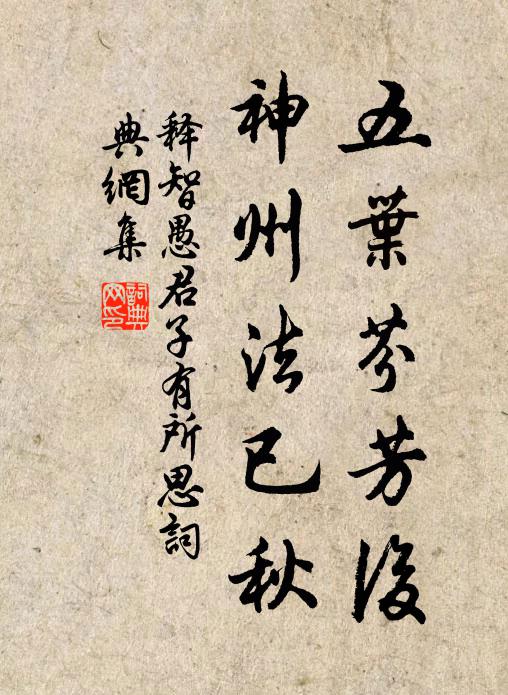 五葉芬芳後
神州法已秋
释智愚君子有所思詞
典網集
詞典
网印